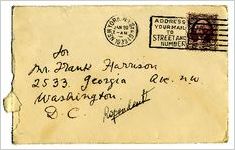 NEW YORK, N.Y.
JAN
-AM
ADDRESS
YOUR MAIL
TO
STREET AND
NUMBER
To
Mr. Frank Harrison
2533 Georgia Ave. nw
Washington.
D. C.